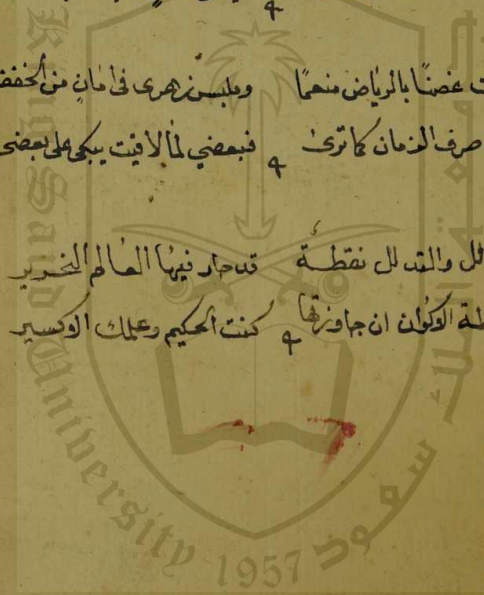 ت غصنًا بالرياض منعمًا وملبس زهرى فى امان من الخفض
صرف الزمان كما ترى فبعضي لما لاقيت يبكى على بعضى
نقطة قد حار فيها العالم النحرير
الاكوان ان جاوزتها كنت الحكيم وعلمك الاكسير
King Saud University
1957
سعود